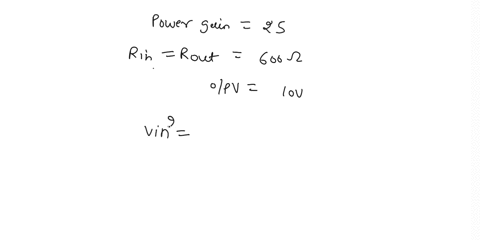 Power gain = 25
Rin = Rout = 600 Ω
O/PV = 10V
Vin? =